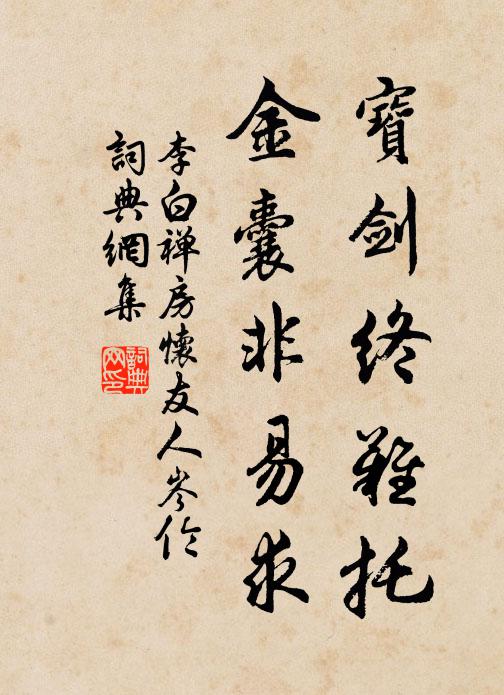 寶劍終難托
金囊非易求
李白禅房懷友人岑伦
詞典網集
詞典网印